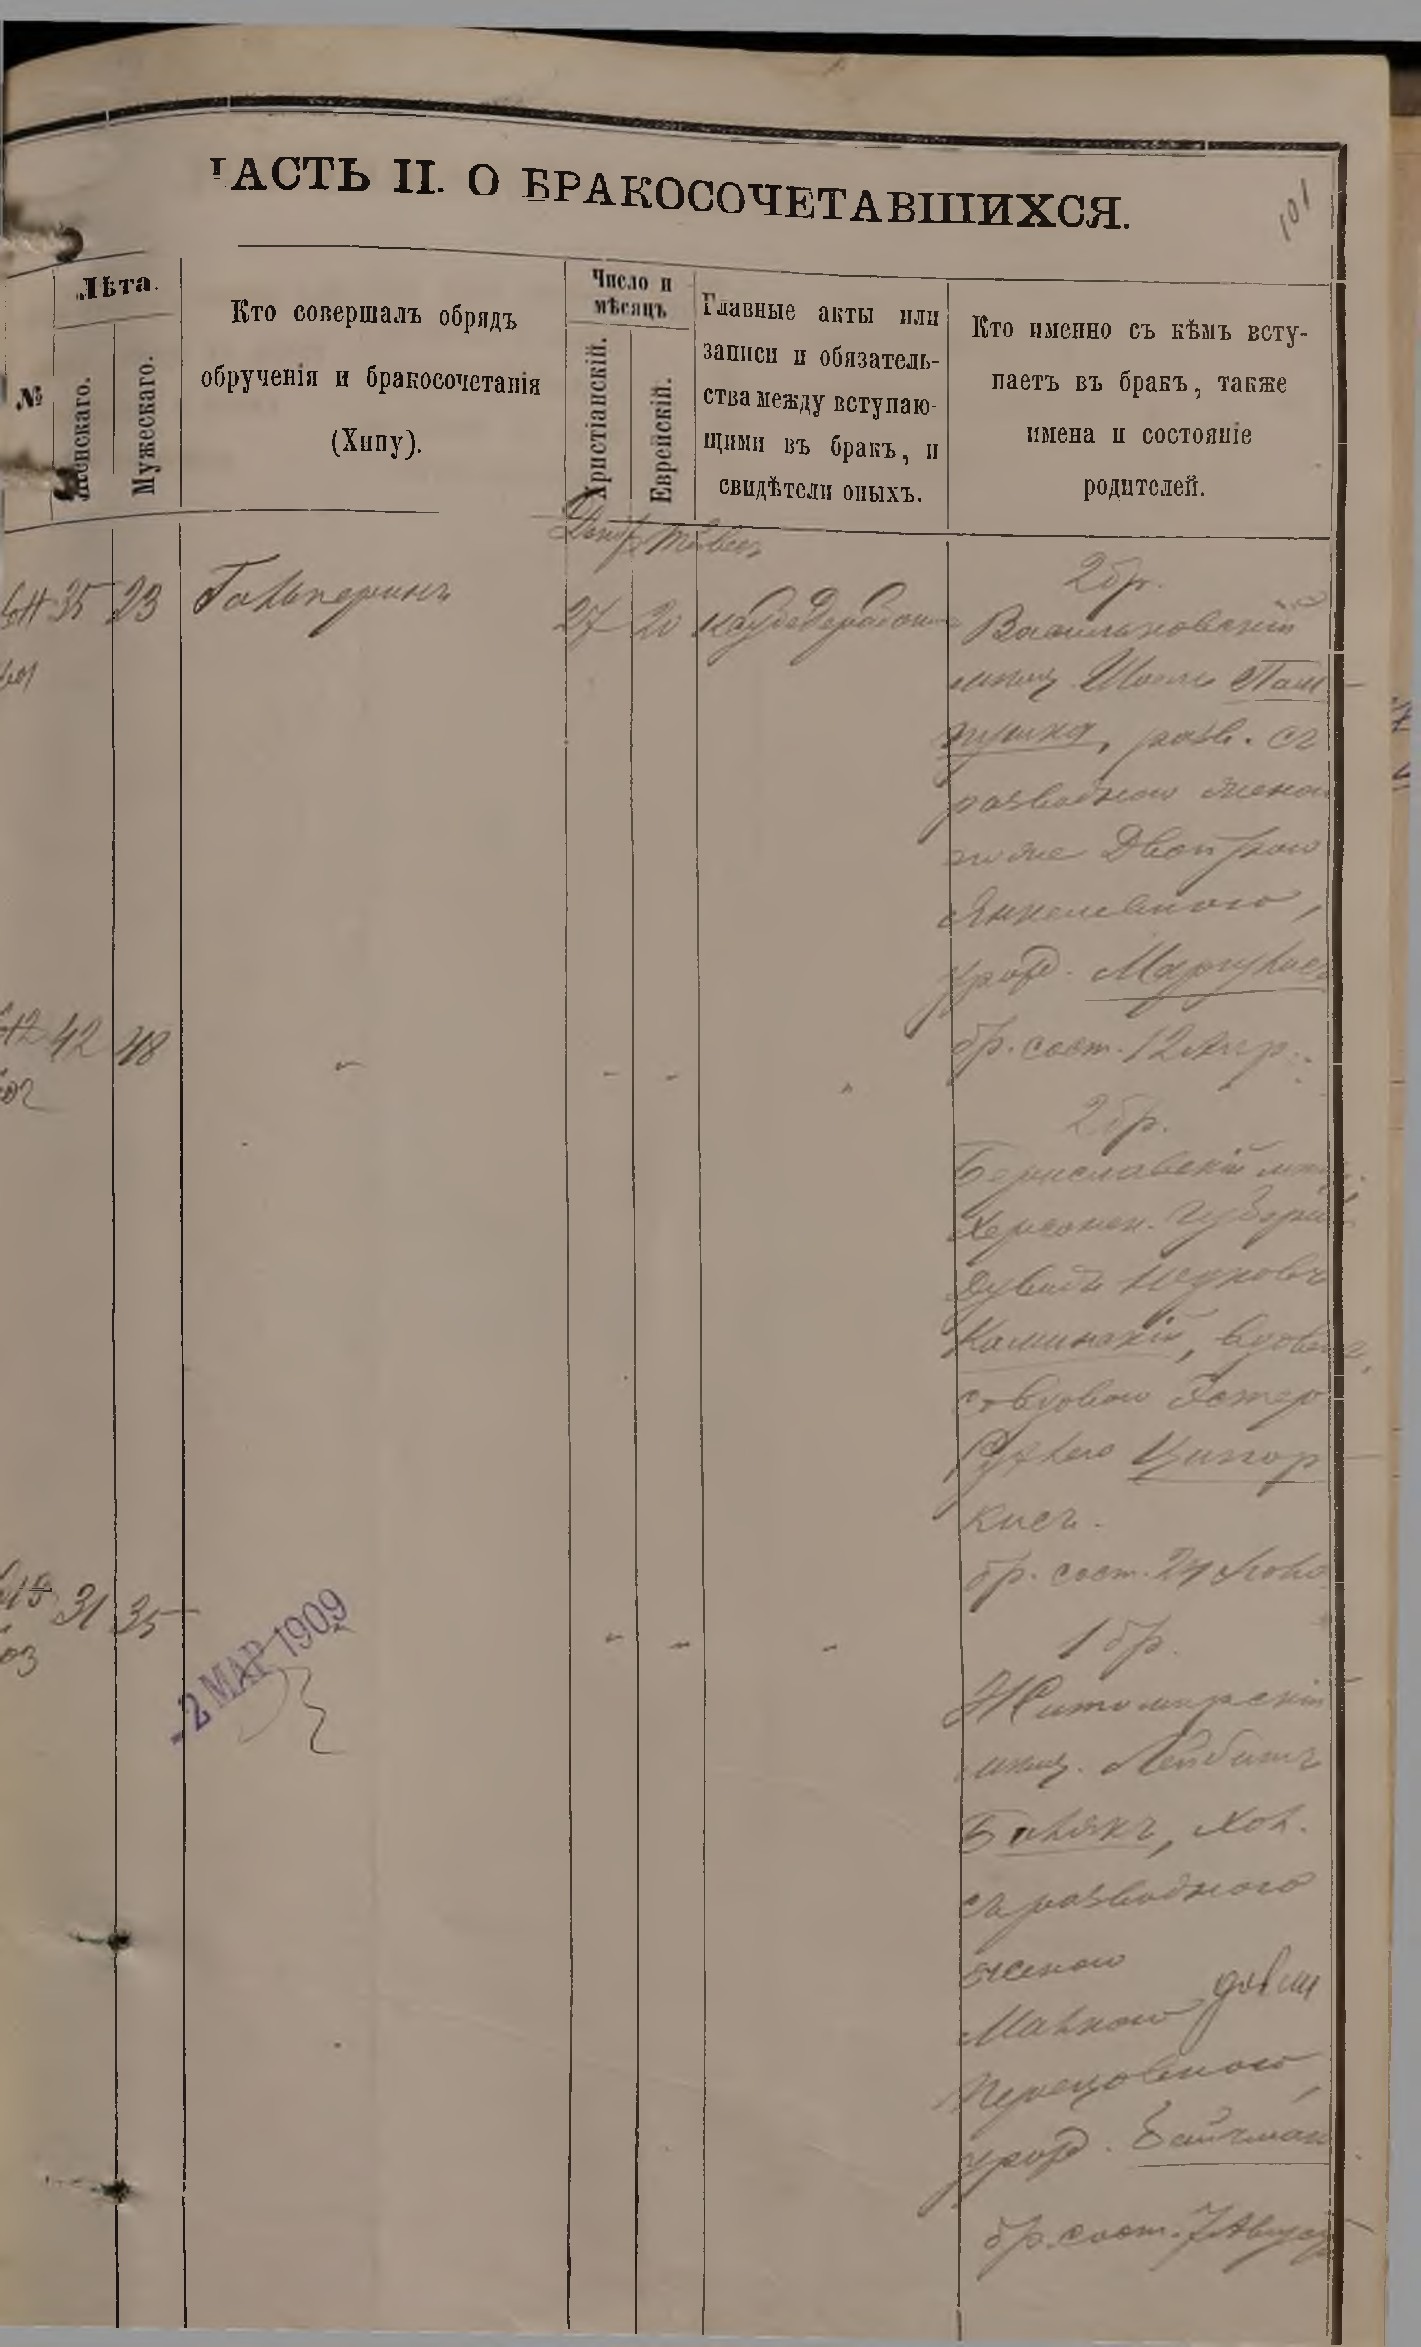 ЧАСТЬ II. О БРАКОСОЧЕТАВШИХСЯ.
101
№
Лѣта.
Женскаго.
Мужескаго.
Кто совершалъ обрядъ
обрученія и бракосочетанія
(Хипу).
Число и
мѣсяцъ
Христіанскій.
Еврейскій.
Главные акты или
записи и обязатель-
ства между вступаю-
щими въ бракъ, и
свидѣтели оныхъ.
Кто именно съ кѣмъ всту-
паетъ въ бракъ, также
имена и состояніе
родителей.
Декбр Тейвесъ
35 23 Гальперинъ 27 20
2 бр.
Васильковскій
мѣщ.
разв. съ
разводною женою
Двейрою
Янкелевною,
урож. Маргулисъ
бр. сост. 12 Апр.
42 48
2 бр.
Бериславскій мѣщ.
Херсонск. губерніи
Дувидъ
Каминскій, вдовецъ,
со вдовою Эстер
Рухлею Ципор
кисъ.
бр. сост. 24
31 35
-2 МАР 1909
1 бр.
Житомирскій
мѣщ. Лейбишъ
хол.
съ разводною
женою
Малкою
Перецовною,
урож.
бр. сост. 7 Август